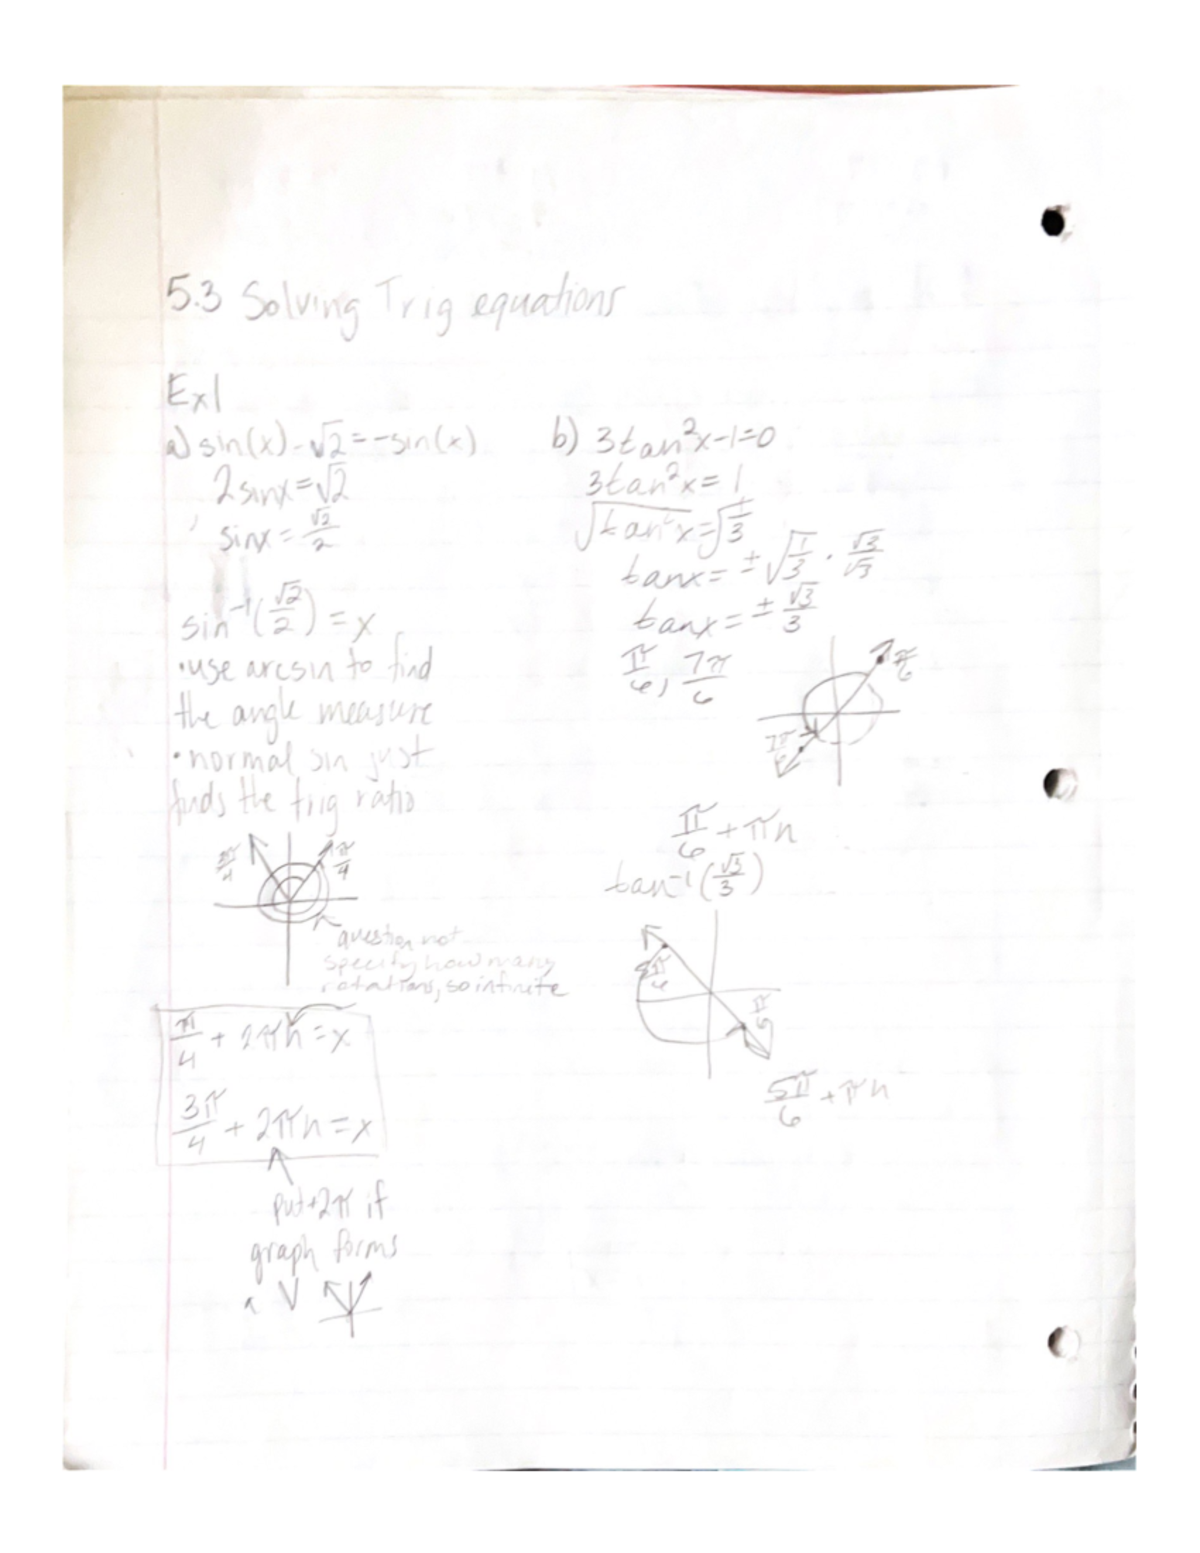 5.3 Solving Trig equations
Ex1
a) sin(x) - √2 = -sin(x)
2sinx = √2
sinx = √2/2
sin⁻¹(√2/2) = x
•use arcsin to find
the angle measure
•normal sin just
finds the trig ratio
3π/4 π/4
question not
specify how many
rotations, so infinite
π/4 + 2πn = x
3π/4 + 2πn = x
put +2π if
graph forms
a V
b) 3tan²x-1=0
3tan²x = 1
√tan²x = √1/3
tanx = ±√1/3 · √3/√3
tanx = ± √3/3
π/6, 7π/6
π/6
7π/6
π/6 + πn
tan⁻¹(√3/3)
5π/6
5π/6 + πn